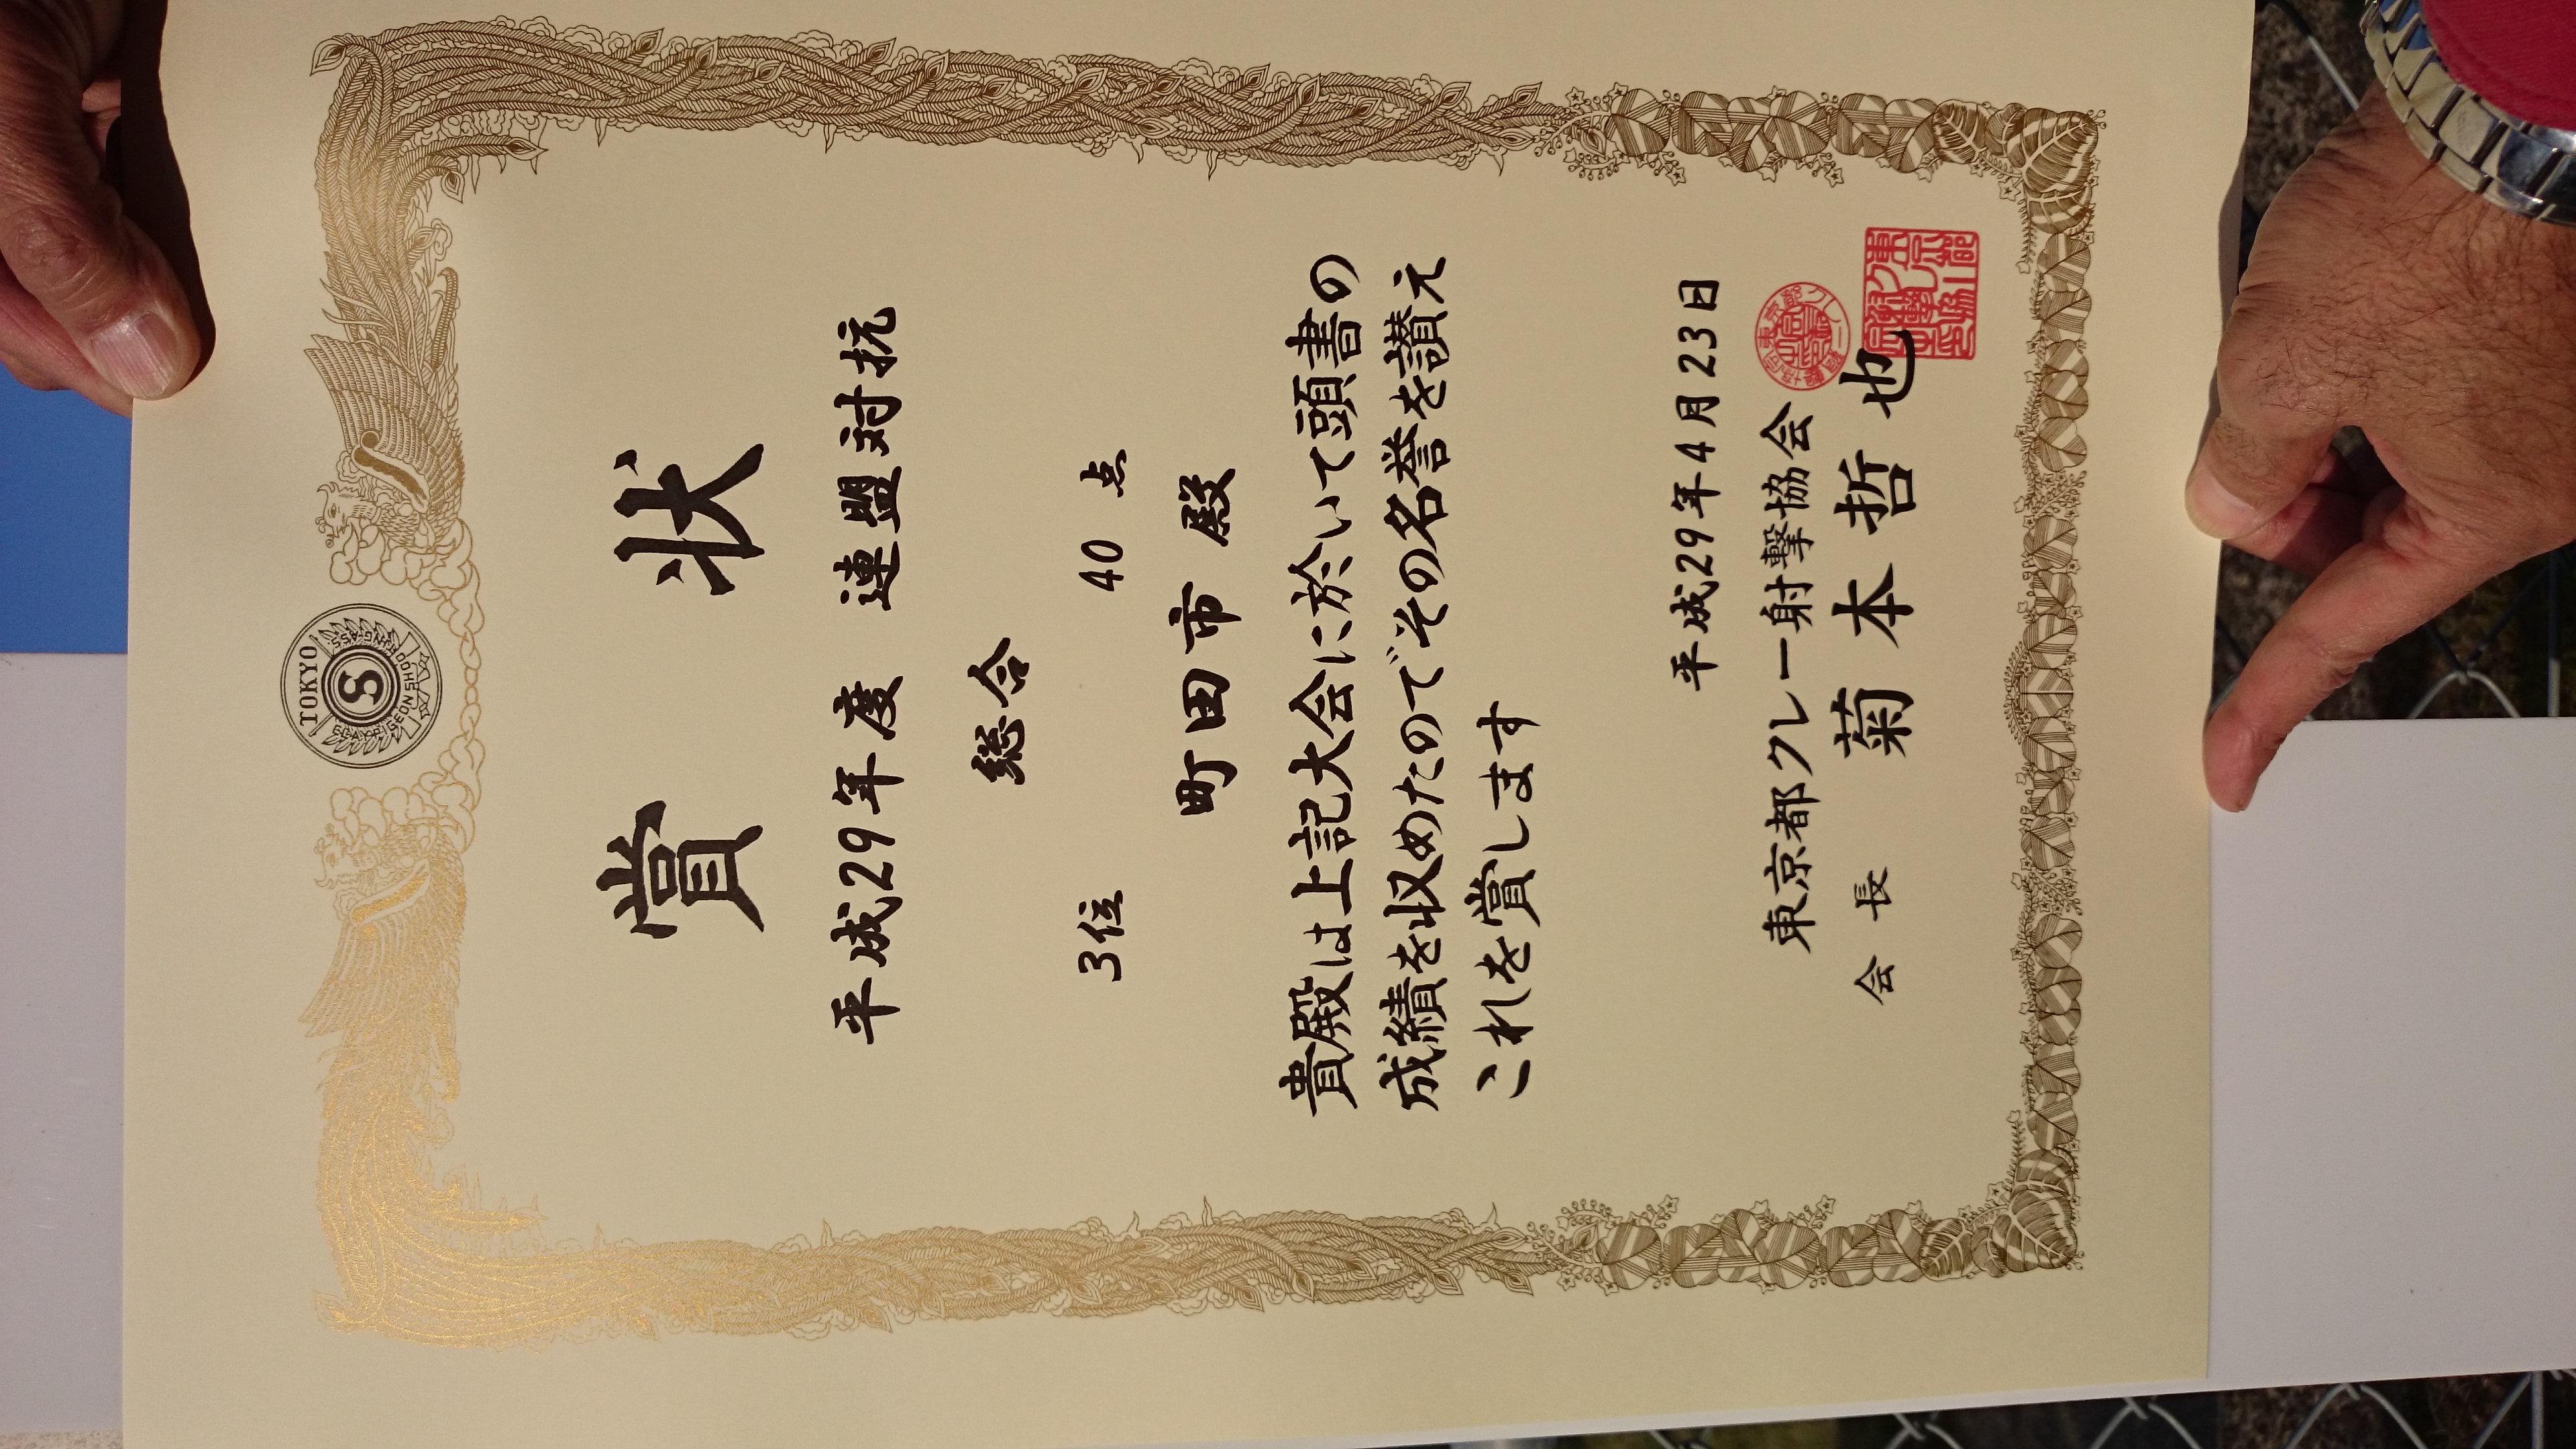 TOKYO
S
CLAY PIGEON SHOOTING ASS
賞 状
平成29年度 連盟対抗
総合
3位 40 点
町田市 殿
貴殿は上記大会に於いて頭書の
成績を収めたのでその名誉を讃え
これを賞します
平成29年4月23日
東京都クレー射撃協会
会 長 菊 本 哲 也